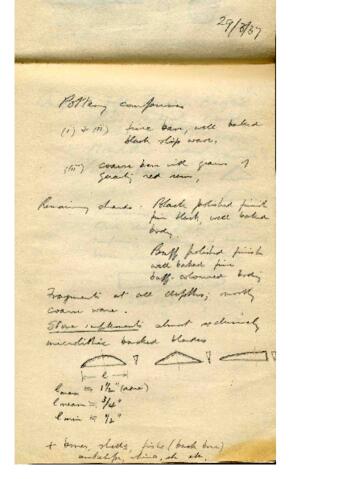 29/3/57
Pottery comprises
(i) + (ii) fine bare, well baked
black slip ware.
(iii) coarse bare with grains of
quartz, red ware.
Remaining sherds. Black polished finish
fine black, well baked
body.
Buff polished finish
well baked fine
buff-coloured body
Fragments at all depths; mostly
coarse ware.
Stone implements almost exclusively
microlithic backed blades
l
l max = 1½" (rare)
l mean = ¾"
l min = ½"
+ bones, shells, fishe (back bone)